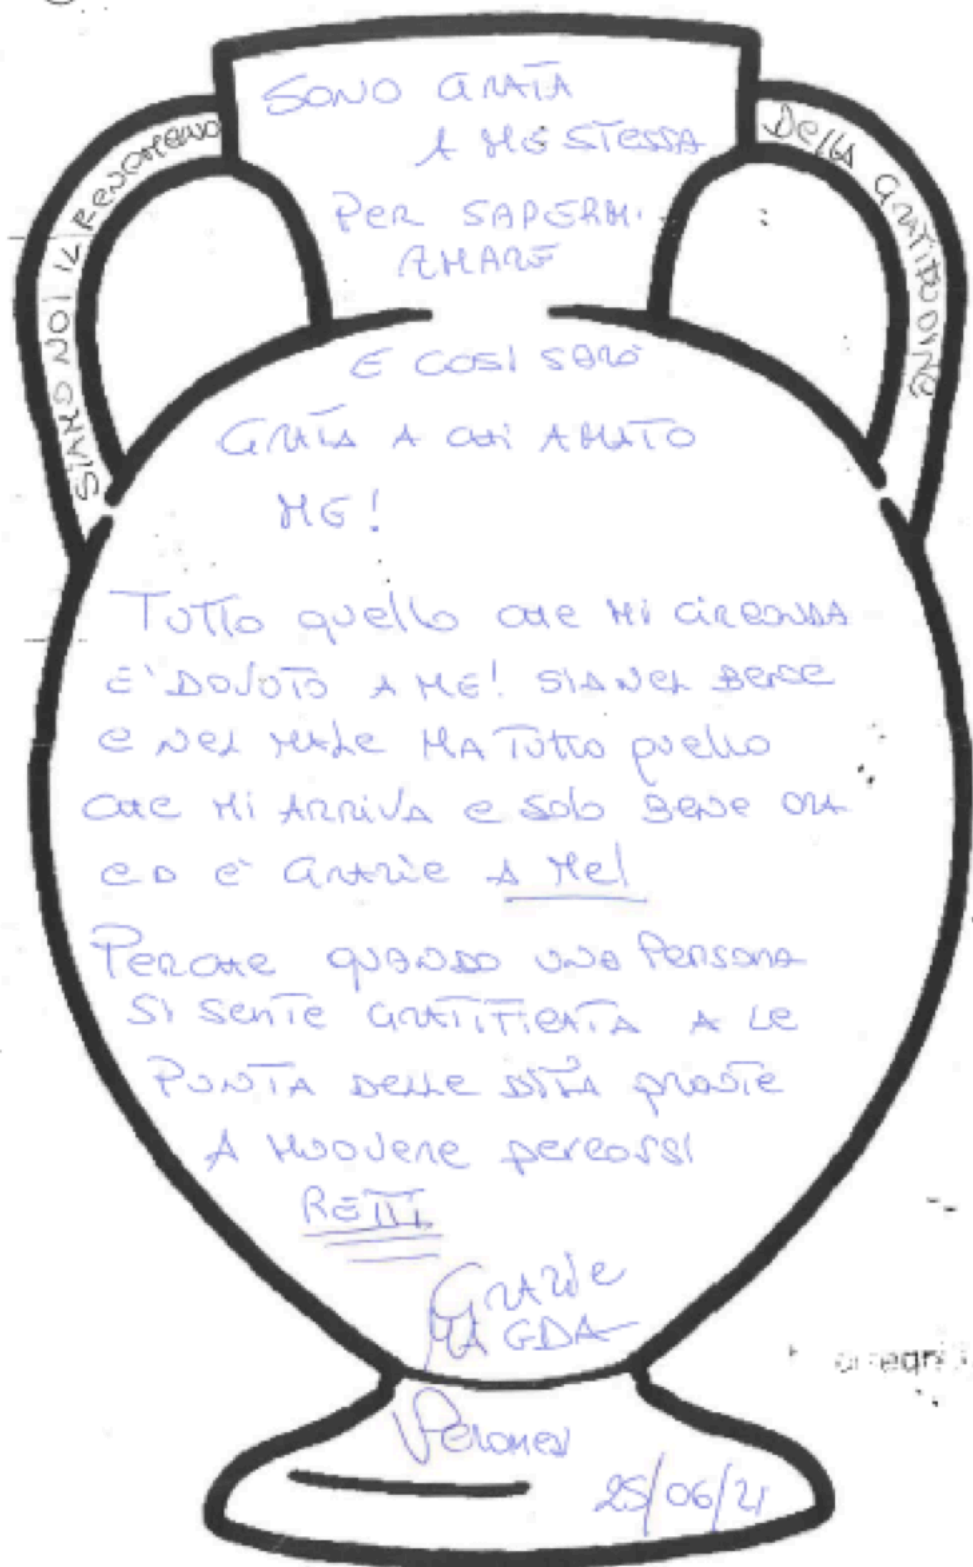 SIAMO NOI IL FENOMENO
DELLA GRATITUDINE
SONO GRATA
A ME STESSA
PER SAPERMI
AMARE
E COSI SARÒ
GRATA A CHI AMATO
ME!
TUTTO quello CHE MI CIRCONDA
E' DOVUTO A ME! SIA NEL BENE
E NEL MALE MA TUTTO quello
CHE MI ARRIVA E SOLO BENE ORA
ED E' GRAZIE A ME!
PERCHE QUANDO UNA PERSONA
SI SENTE GRATIFICATA A LE
PUNTA DELLE DITA PRONTE
A MUOVERE PERCORSI
RETTI
GRAZIE
MAGDA
25/06/21